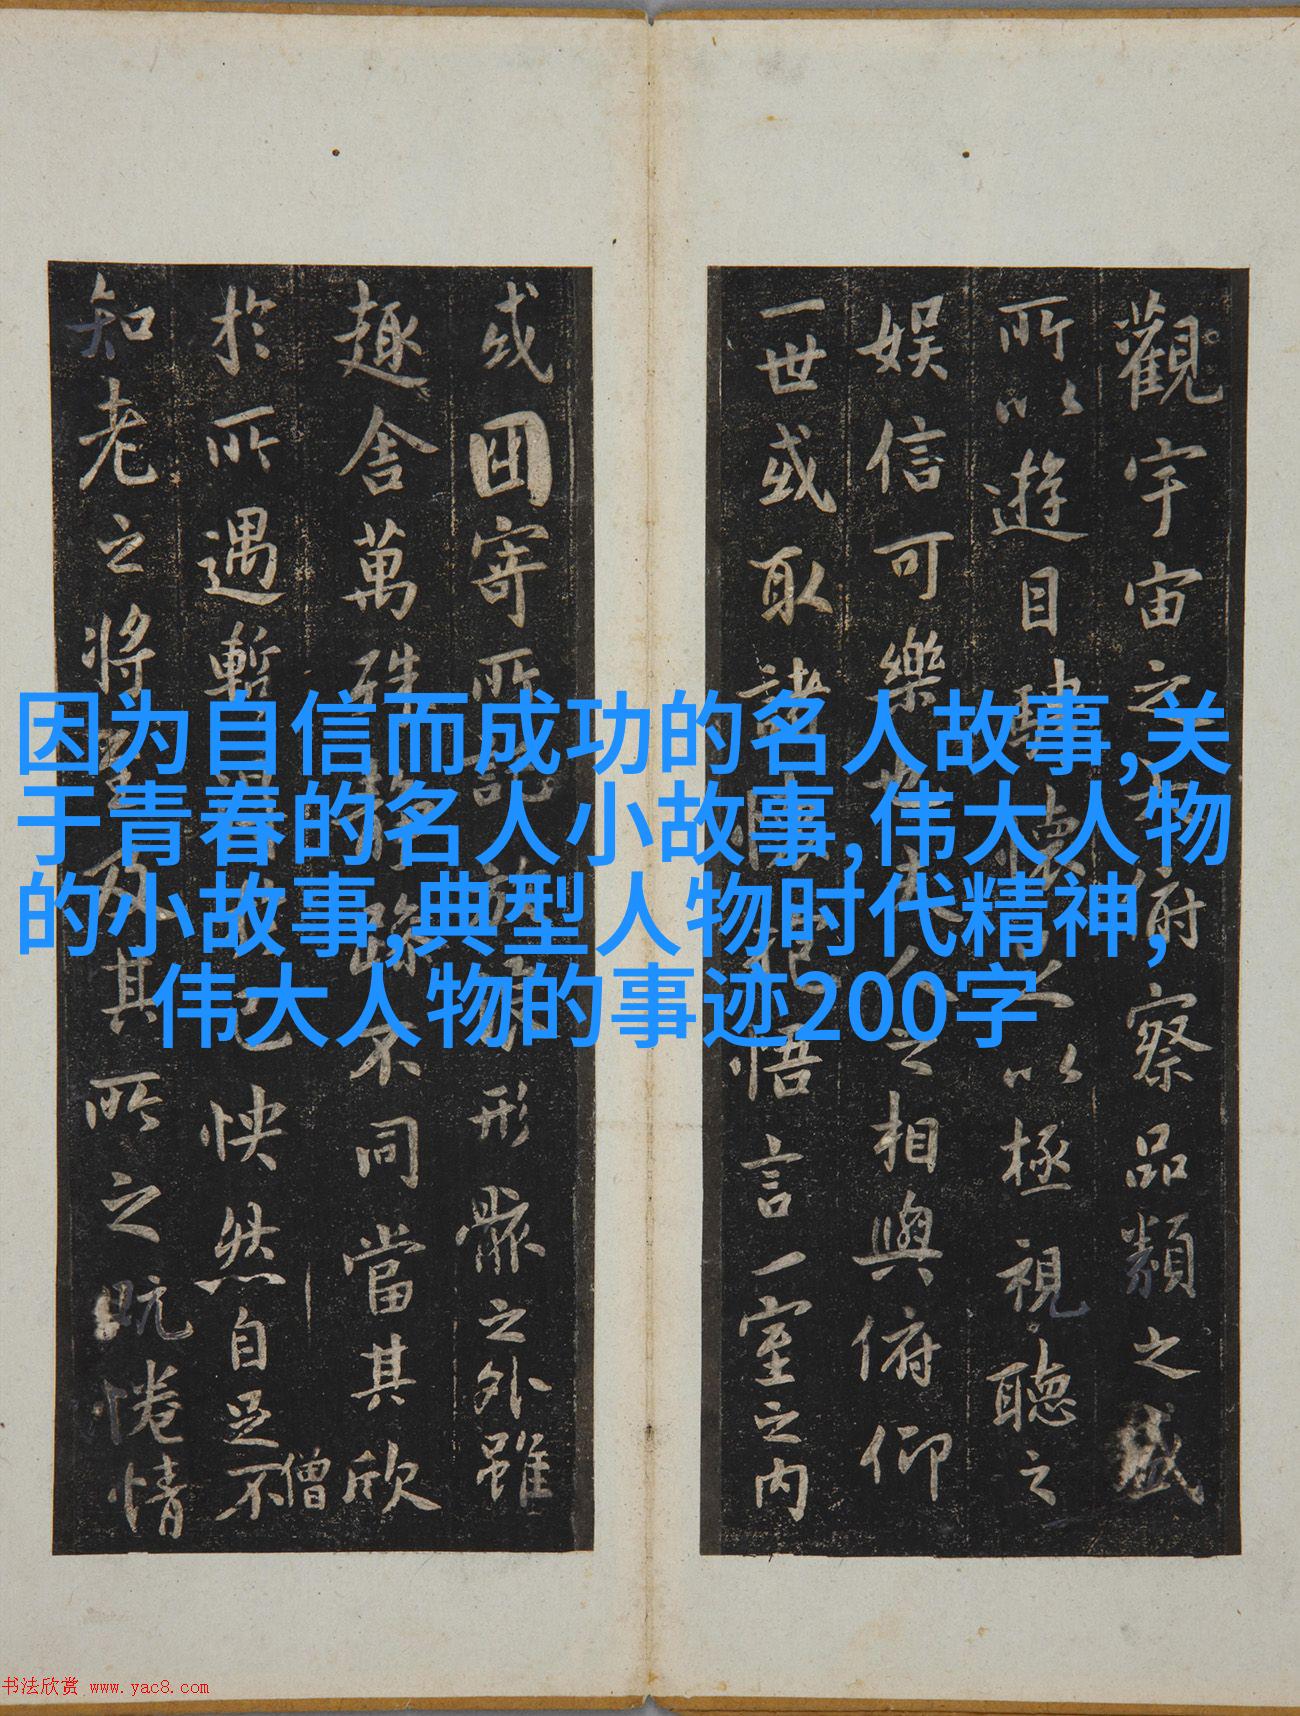 觀宇宙之大府察品類之盛
所以遊目騁懷足以極視聽之
娛信可樂也夫人之相與俯仰
一世或取諸懷抱悟言一室之內
或因寄所託放浪形骸之外雖
趣舍萬殊靜躁不同當其欣
僧
於所遇暫得於己怏然自足不
知老之將至及其所之既惓情
因为自信而成功的名人故事,关
于青春的名人小故事,伟大人物
的小故事,典型人物时代精神,
伟大人物的事迹200字
书法欣赏 www.yac8.com